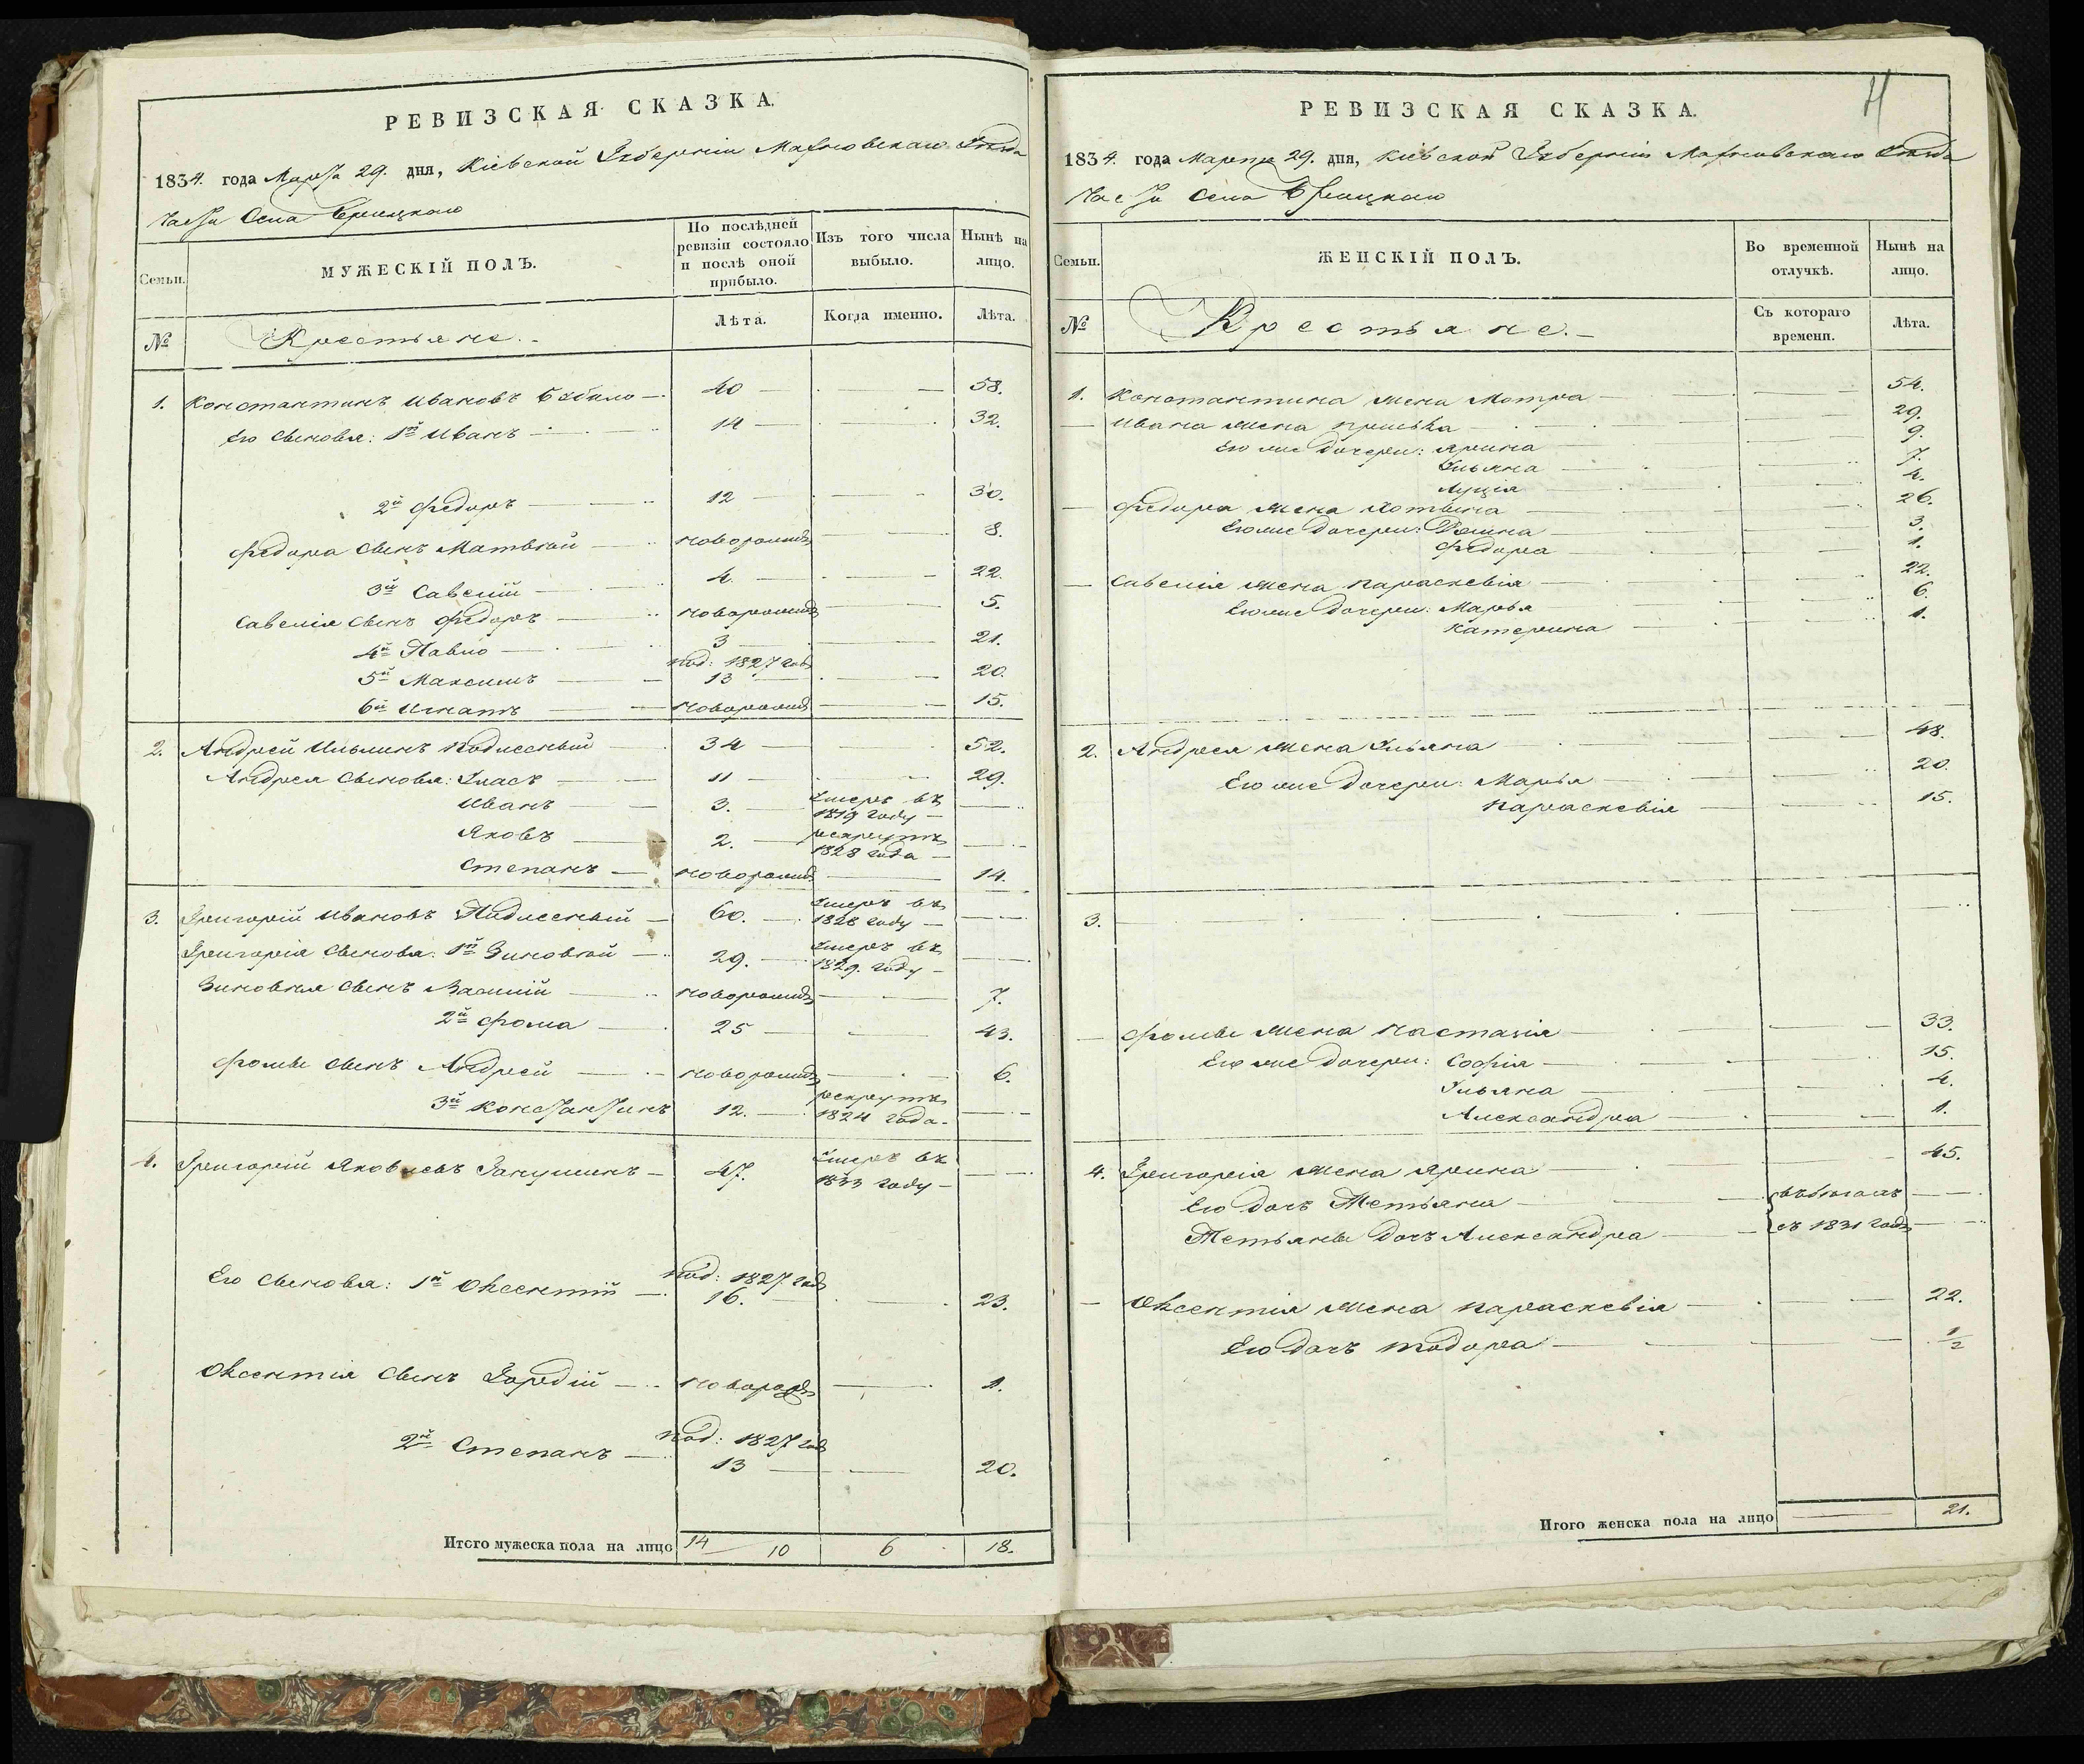 РЕВИЗСКАЯ СКАЗКА.
1834. года Марта 29. дня, Кіевской Губерніи Махновскаго Уѣзда
Части Села
Семьи.
МУЖЕСКІЙ ПОЛЪ.
По послѣдней ревизіи состояло и послѣ оной прибыло.
Изъ того числа выбыло.
Нынѣ на лицо.
№
Крестьяне.
Лѣта.
Когда именно.
Лѣта.
1. Константинъ Ивановъ 40 58.
Его сыновья: 1й Иванъ 14 32.
2й Федоръ 12 30.
Федора сынъ Матвѣй новорожд 8.
3й Савелій 4. 22.
Савелія сынъ Федоръ новорожд 5.
4й Павло 3 21.
под: 1827 год
5й Максимъ 13 20.
6й Игнатъ новорожд 15.
2. Андрей Ильинъ 34 52.
Андрея сыновья: Власъ 11 29.
Иванъ 3. умеръ въ 1819 году
Яковъ 2. рекрутъ 1828 года
Степанъ новорожд 14.
3. Григорій Ивановъ 60. умеръ въ 1828 году
Григорія сыновья: 1й Зиновій 29. умеръ въ 1829. году
Зиновія сынъ Василій новорожд 7.
2й Фома 25 43.
Фомы сынъ Андрей новорожд 6.
3й Константинъ 12. рекрутъ 1824 года.
4. Григорій Яковлевъ 47. умеръ въ 1833 году
под: 1827 год
Его сыновья: 1й Оксентій 16. 23.
Оксентія сынъ Гордій новорожд 1.
под: 1827 год
2й Степанъ 13 20.
Итого мужеска пола на лицо 14 10 6 18.
РЕВИЗСКАЯ СКАЗКА.
1834. года Марта 29. дня, Кіевской Губерніи Махновскаго Уѣзда
Части Села
Семьи.
ЖЕНСКІЙ ПОЛЪ.
Во временной отлучкѣ.
Нынѣ на лицо.
№
Крестьяне.
Съ котораго времени.
Лѣта.
1. Константина жена Мотра 54.
Ивана жена Приська 29.
Его же дочери: Ярина 9.
Ульяна 7.
Луція 4.
Федора жена 26.
Его же дочери: 3.
Федора 1.
Савелія жена Параскевія 22.
Его же дочери: Марья 6.
Катерина 1.
2. Андрея жена Ульяна 48.
Его же дочери: Марья 20.
Параскевія 15.
3.
Фомы жена Настазія 33.
Его же дочери: Софія 15.
Ульяна 4.
Александра 1.
4. Григорія жена Ярина 45.
Его дочь Тетьяна въ бѣгахъ
Тетьяны дочь Александра съ 1831 года
Оксентія жена Параскевія 22.
Его дочь Тодора 1/2
Итого женска пола на лицо 21.